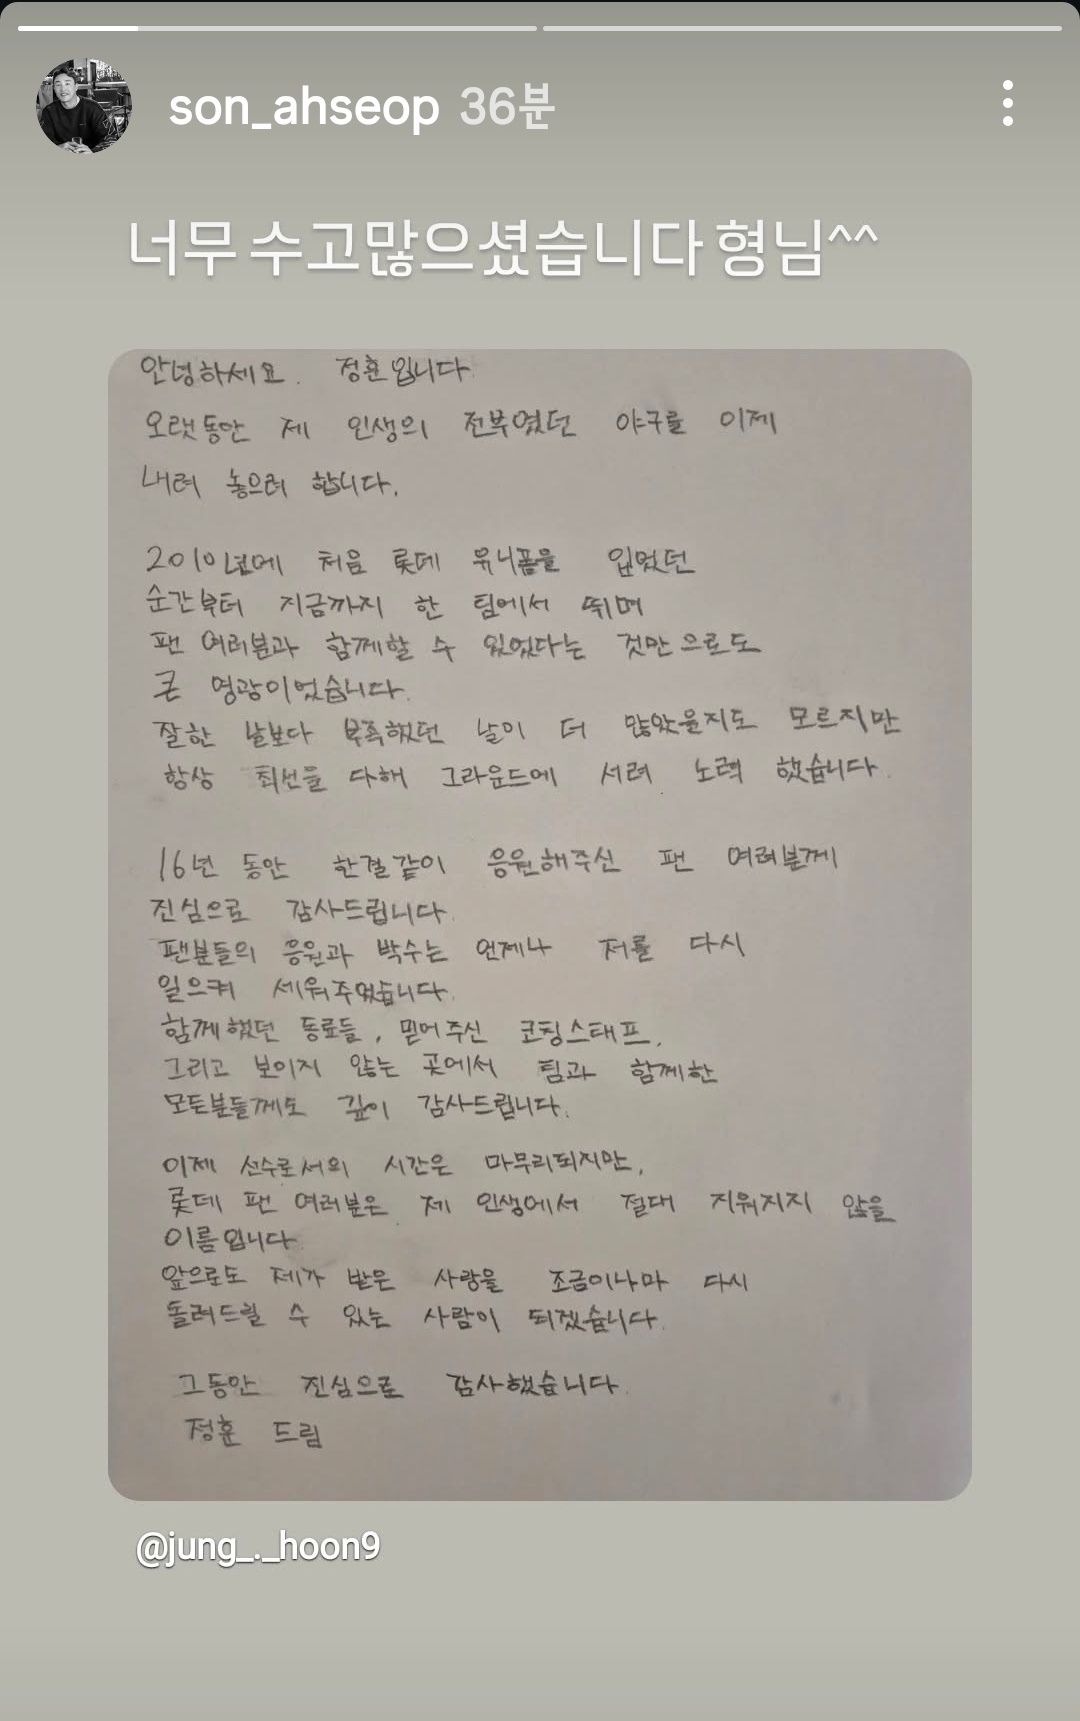 son_ahseop 36분
너무 수고많으셨습니다 형님^^
안녕하세요. 정훈입니다.
오랫동안 제 인생의 전부였던 야구를 이제
내려 놓으려 합니다.
2010년에 처음 롯데 유니폼을 입었던
순간부터 지금까지 한 팀에서 뛰며
팬 여러분과 함께할 수 있었다는 것만으로도
큰 영광이었습니다.
잘한 날보다 부족했던 날이 더 많았을지도 모르지만
항상 최선을 다해 그라운드에 서려 노력 했습니다.
16년 동안 한결같이 응원해주신 팬 여러분께
진심으로 감사드립니다.
팬분들의 응원과 박수는 언제나 저를 다시
일으켜 세워주었습니다.
함께했던 동료들, 믿어주신 코칭스태프,
그리고 보이지 않는 곳에서 팀과 함께한
모든분들께도 깊이 감사드립니다.
이제 선수로서의 시간은 마무리되지만,
롯데 팬 여러분은 제 인생에서 절대 지워지지 않을
이름입니다.
앞으로도 제가 받은 사랑을 조금이나마 다시
돌려드릴 수 있는 사람이 되겠습니다.
그동안 진심으로 감사했습니다.
정훈 드림
@jung_._hoon9